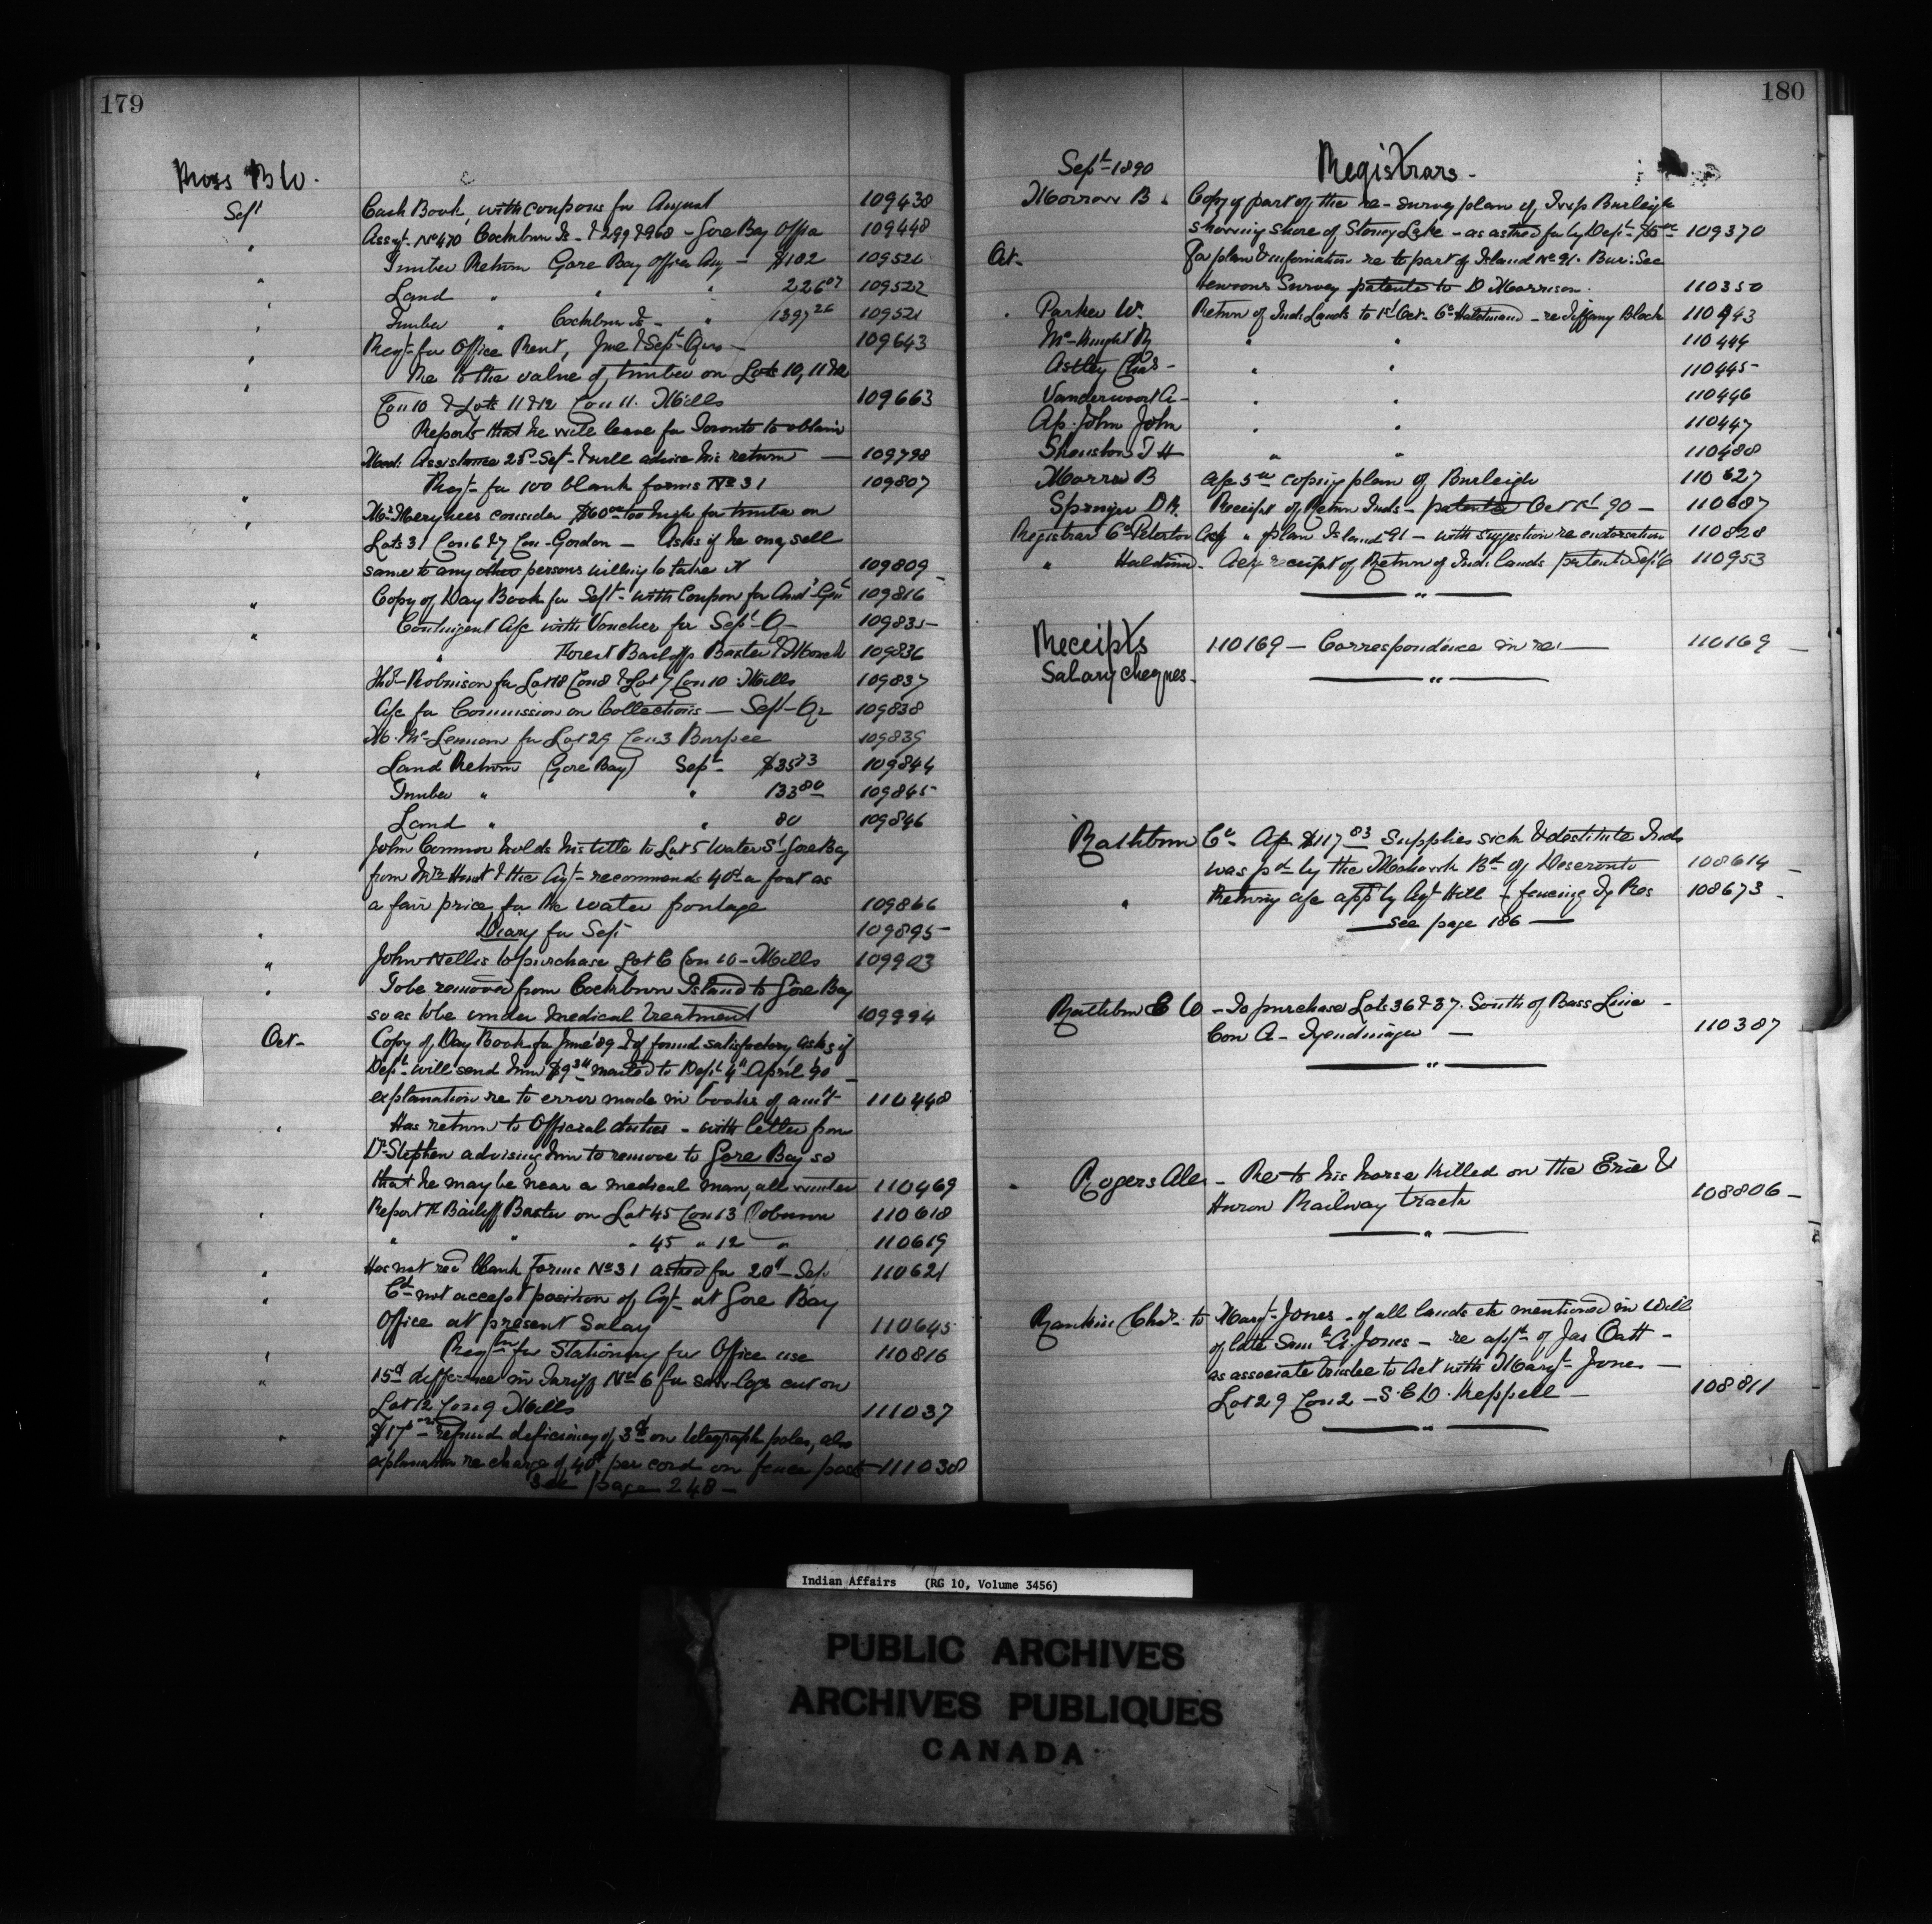 179
Ross B W.
Sept Cash Book, with coupons for August 109438
" Assgt. No 470 Cockburn Is - & 299 & 968 - Gore Bay Office 109448
" Timber Return Gore Bay Office Aug - $102 109520
" Land " " " 226 07 109522
" Timber " Cockburn Is - " 1397 26 109521
" Reqt. for Office Rent, June & Sept. Qrs - 109643
" Re to the value of timber on Lots 10, 11 & 12
Con 10 & Lots 11 & 12 Con 11. Mills 109663
Reports that he will leave for Toronto to obtain
Med: Assistance 28th Sept. & will advise his return — 109798
Reqt. for 100 blank forms No 31 109807
" Mr. Meryhees consider $60 00 too high for timber on
Lots 31 Con 6 & 7 Con - Gordon — Asks if he may sell
same to any other persons willing to take it 109809
" Copy of Day Book for Sept. with Coupon for Aud. Gen 109816
" Contingent A/c with Voucher for Sept. Q - 109835
" Forest Bailiffs Baxter & 109836
Robinson for Lot 18 Con 8 & Lot 7 Con 10 Mills 109837
A/c for Commission on Collections — Sept. Qr 109838
M. McLennan for Lot 29 Con 3 Burpee 109839
" Land Return (Gore Bay) Sept. $35 73 109844
Timber " " 133 80 109845
Land " " 80 109846
" John Connor holds his title to Lot 5 Water St Gore Bay
from Mr Hunt & the Agt. recommends 40c a foot as
a fair price for the water frontage 109866
" Diary for Sept 109895
" John Nellis to purchase Lot 6 Con 10 - Mills 109903
" To be removed from Cockburn Island to Gore Bay
so as to be under medical treatment 109994
Oct- Copy of Day Book for June '89 & if found satisfactory asks if
Dept. will send him $9 remitted to Dept. 4th April '90 -
explanation re to error made in books of amt 110448
" Has return to Official duties - with letter from
Dr Stephen advising him to remove to Gore Bay so
that he may be near a medical man, all winter 110469
" Report Fr Bailiff Baxter on Lot 45 Con 13 Robinson 110618
" " " 45 " 12 " 110619
" Has not rec'd blank Forms No 31 asked for 20th Sept 110621
" Cd. not accept position of Agt. at Gore Bay
Office at present Salary 110645
" Reqtn for Stationery for Office use 110816
" 15c difference in Tariff No 6 for saw logs cut on
Lot 12 Con 9 Mills 111037
" $17 refund deficiency of 3c on telegraph poles, also
explanation re charge of 40c per cord on fence posts 111038
See page 248 -
180
Sept. 1890 Registrars -
Morrow B. Copy of part of the re-survey plan of Twp Burleigh
showing shore of Stoney Lake - as asked for by Dept. $5 00 109370
Oct- For plan & information re to part of Island No 91. Bur: See
Survey patented to D Morrison. 110350
Parker W. Return of Ind: Lands to 1st Oct. Co Haldimand - re Tiffany Block 110443
McKnight R " " 110444
Astley Chas - " " 110445
Vanderwoort A - " " 110446
Ap. John John " " 110447
Shouston T H " " 110480
Morrow B A/c 5 00 copying plan of Burleigh 110627
Springer D R. Receipt of Return Inds - patented Oct 1st 90 - 110687
Registrar Co Peterboro Ackg " plan Island 91 - with suggestion re endorsation 110828
" Haldimd - Ackg receipt of Return of Ind: lands patented Sept 6 110953
Receipts 110169 — Correspondence in re: — 110169 -
Salary cheques.
Rathbun Co A/c $117 83 Supplies sick & destitute Inds
was pd by the Mohawk Bd of Deseronto 108614 -
" Retning a/c appd by Agt Hill - fencing Ty Res 108673 -
— see page 186 —
Rathbun E W - To purchase Lots 36 & 37. South of Bass Line -
Con A - Tyendinaga — 110387
Rogers Alex - Re to his horse killed on the Erie &
Huron Railway track 108806 -
Rankin Chas. to Margt. Jones - of all lands etc mentioned in will
of late Saml. A. Jones - re appt. of Jas Oatt -
as associate trustee to Act with Margt. Jones —
Lot 29 Con 2 - S.C.D. Keppell — 108811
Indian Affairs (RG 10, Volume 3456)
PUBLIC ARCHIVES
ARCHIVES PUBLIQUES
CANADA